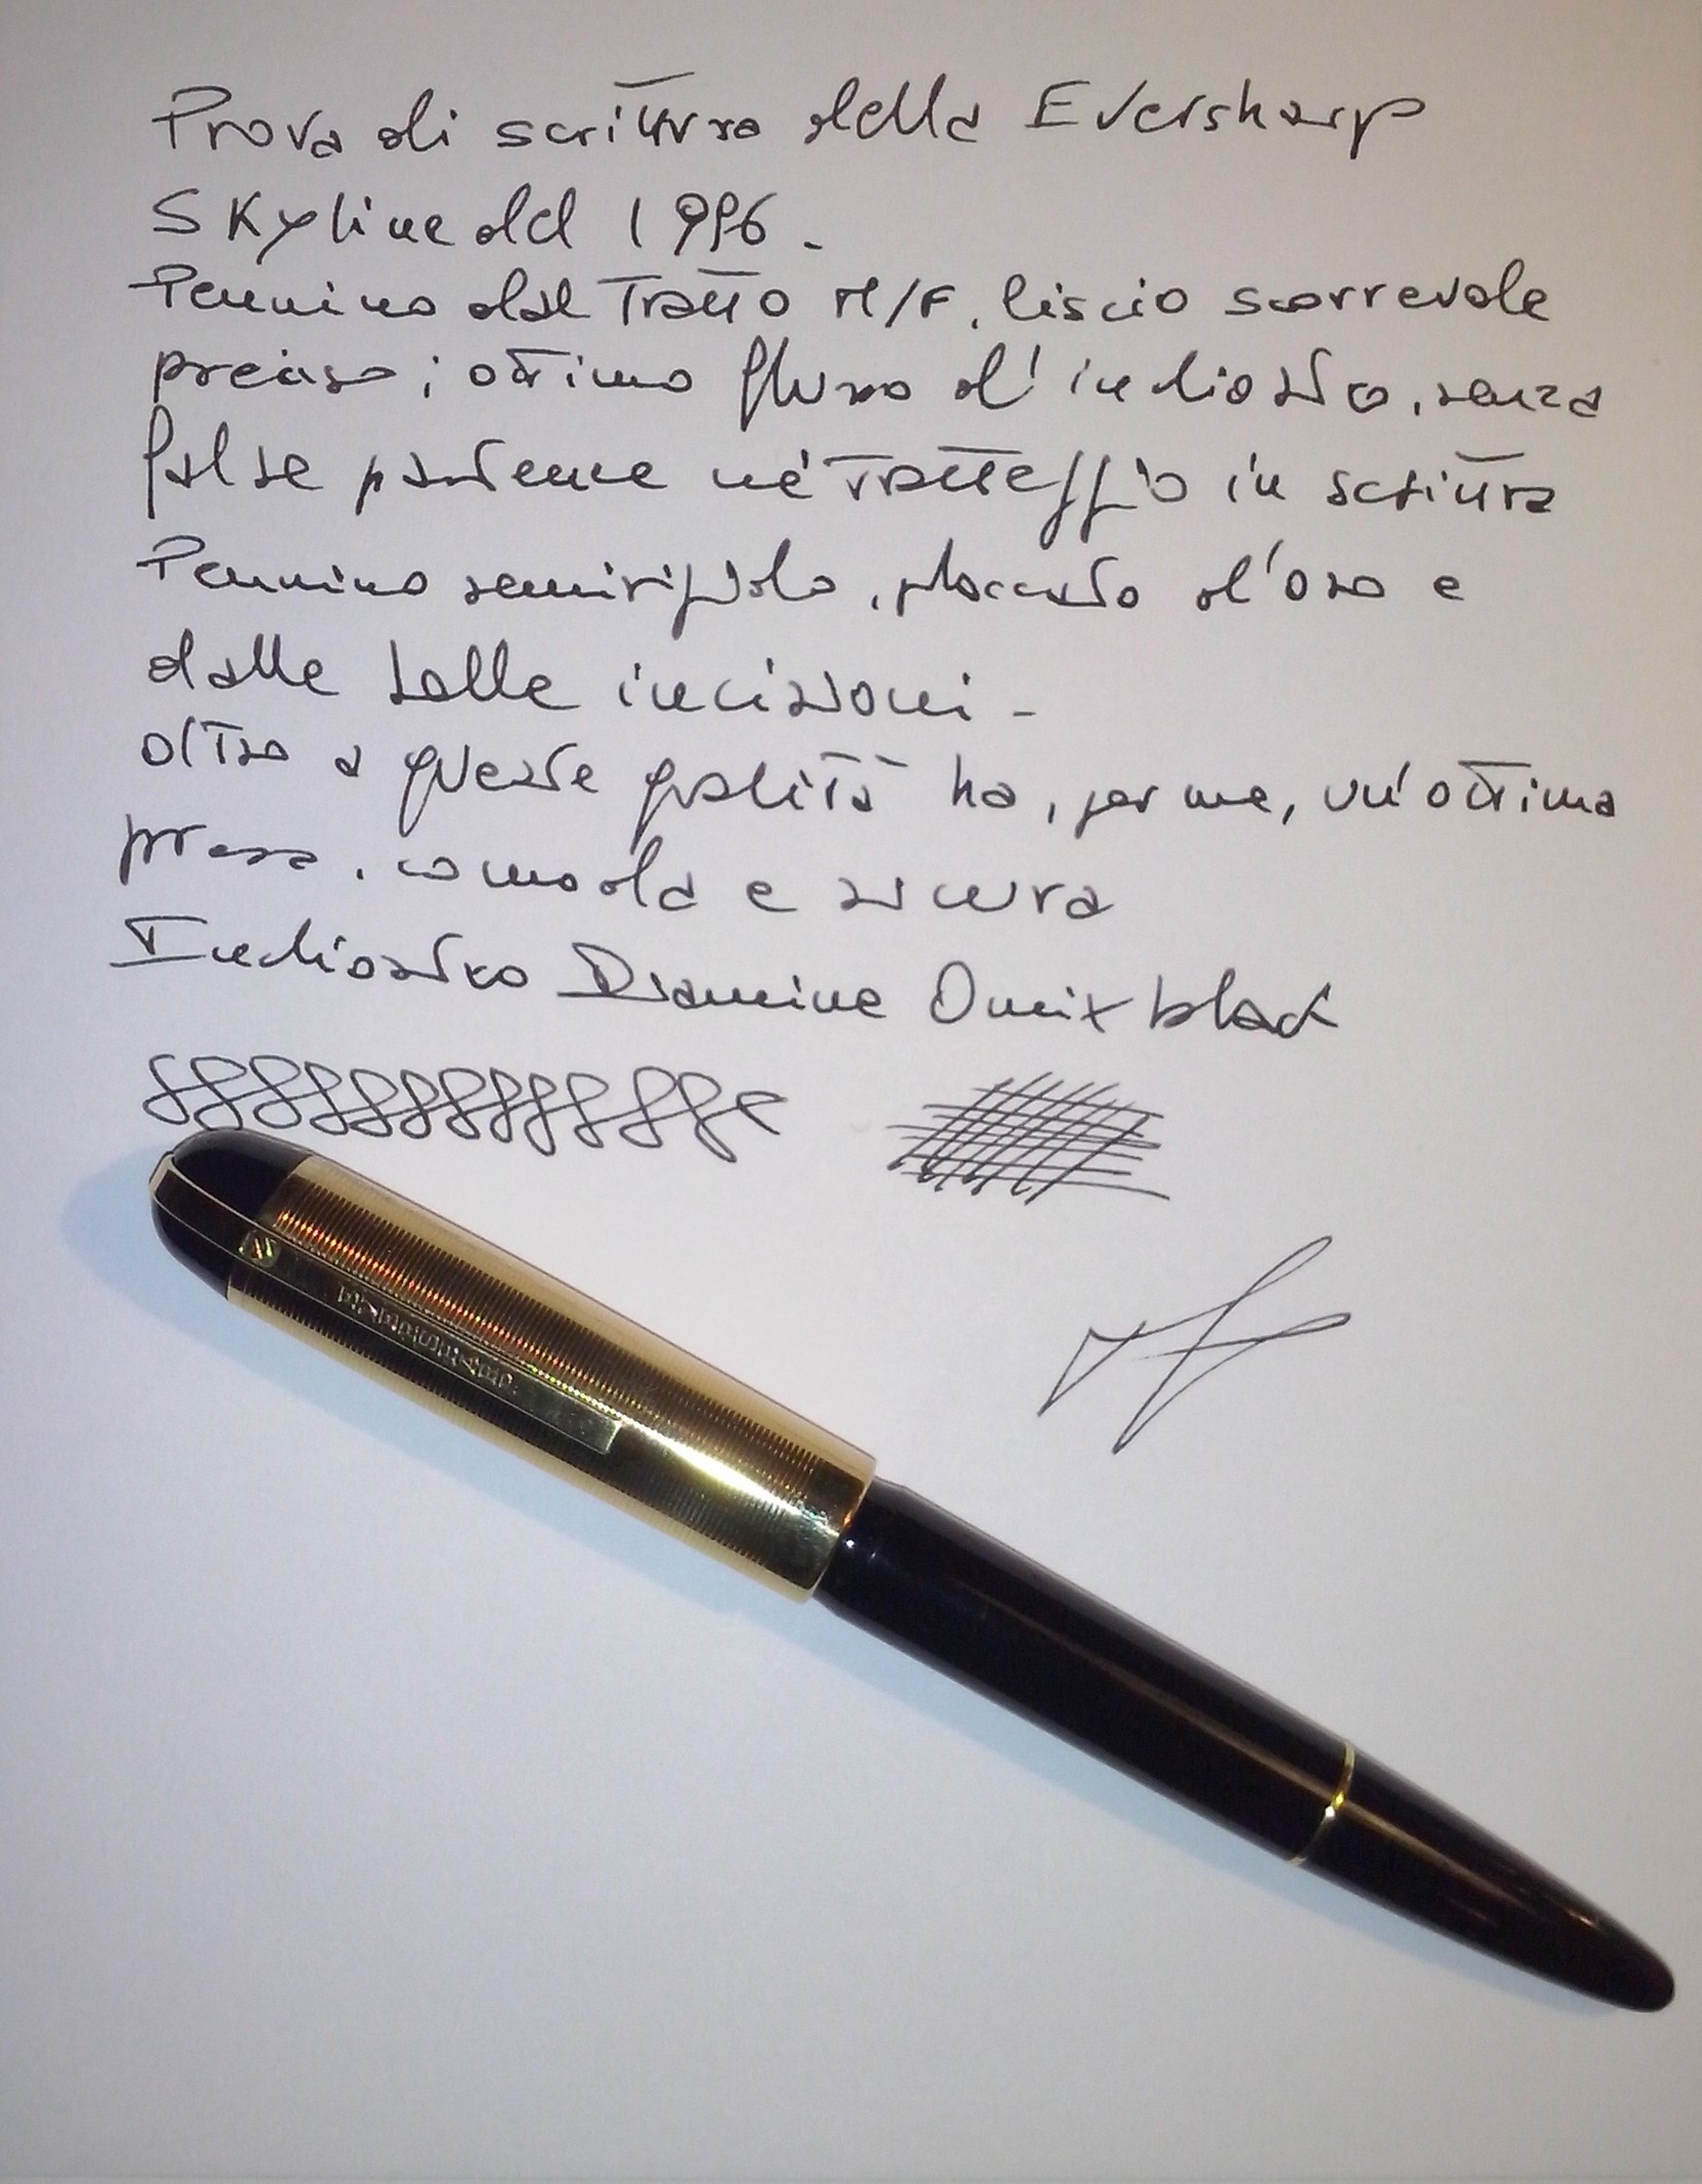 Prova di scrittura della Eversharp
Skyline del 1996.
Pennino dal Tratto M/F, liscio scorrevole
preciso; ottimo flusso d'inchiostro, senza
false partenze né tratteggio in scrittura
Pennino semirigido, placcato d'oro e
dalle belle incisioni -
oltre a queste qualità ha, per me, un'ottima
presa, comoda e sicura
Inchiostro Diamine Onix black
EVERSHARP